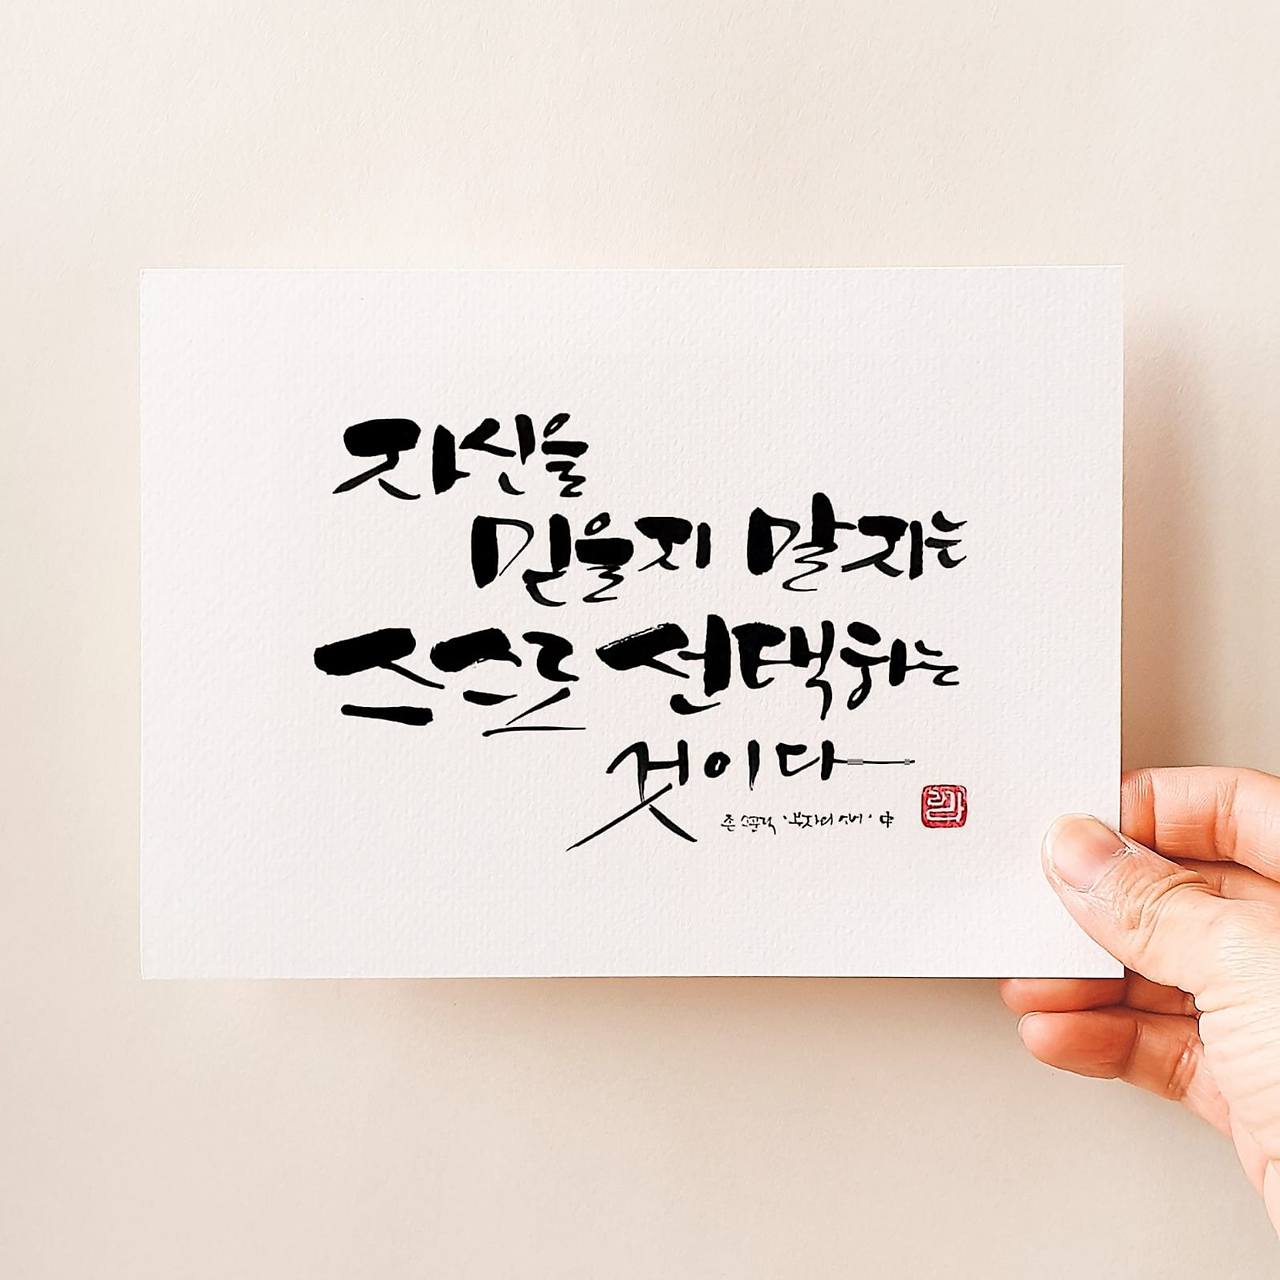 자신을
믿을지 말지는
스스로 선택하는
것이다
존 소포릭 '부자의 언어' 中